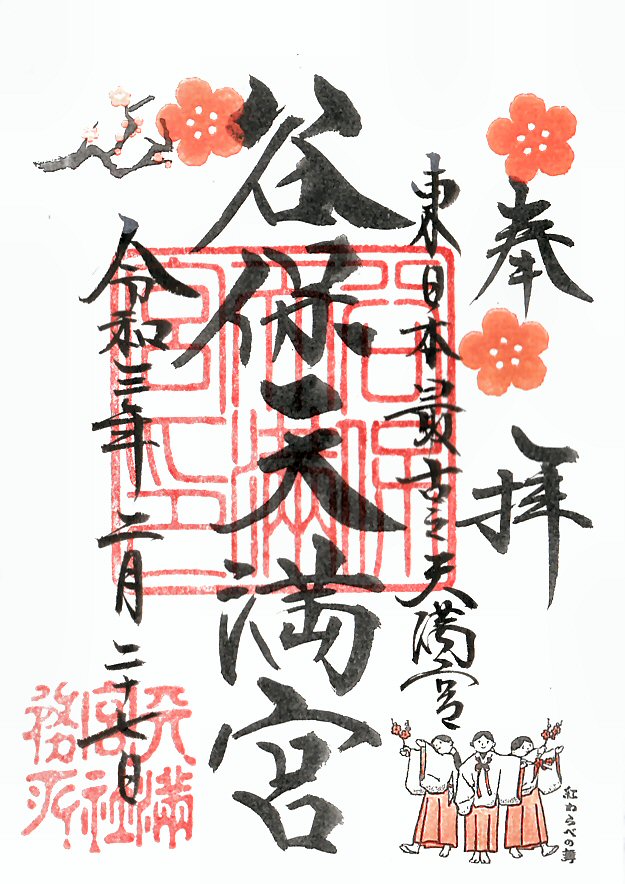 奉拝
東日本最古之天満宮
谷保天満宮
令和三年二月二十七日
谷保天満宮印
天満宮社務所
紅わらべの舞